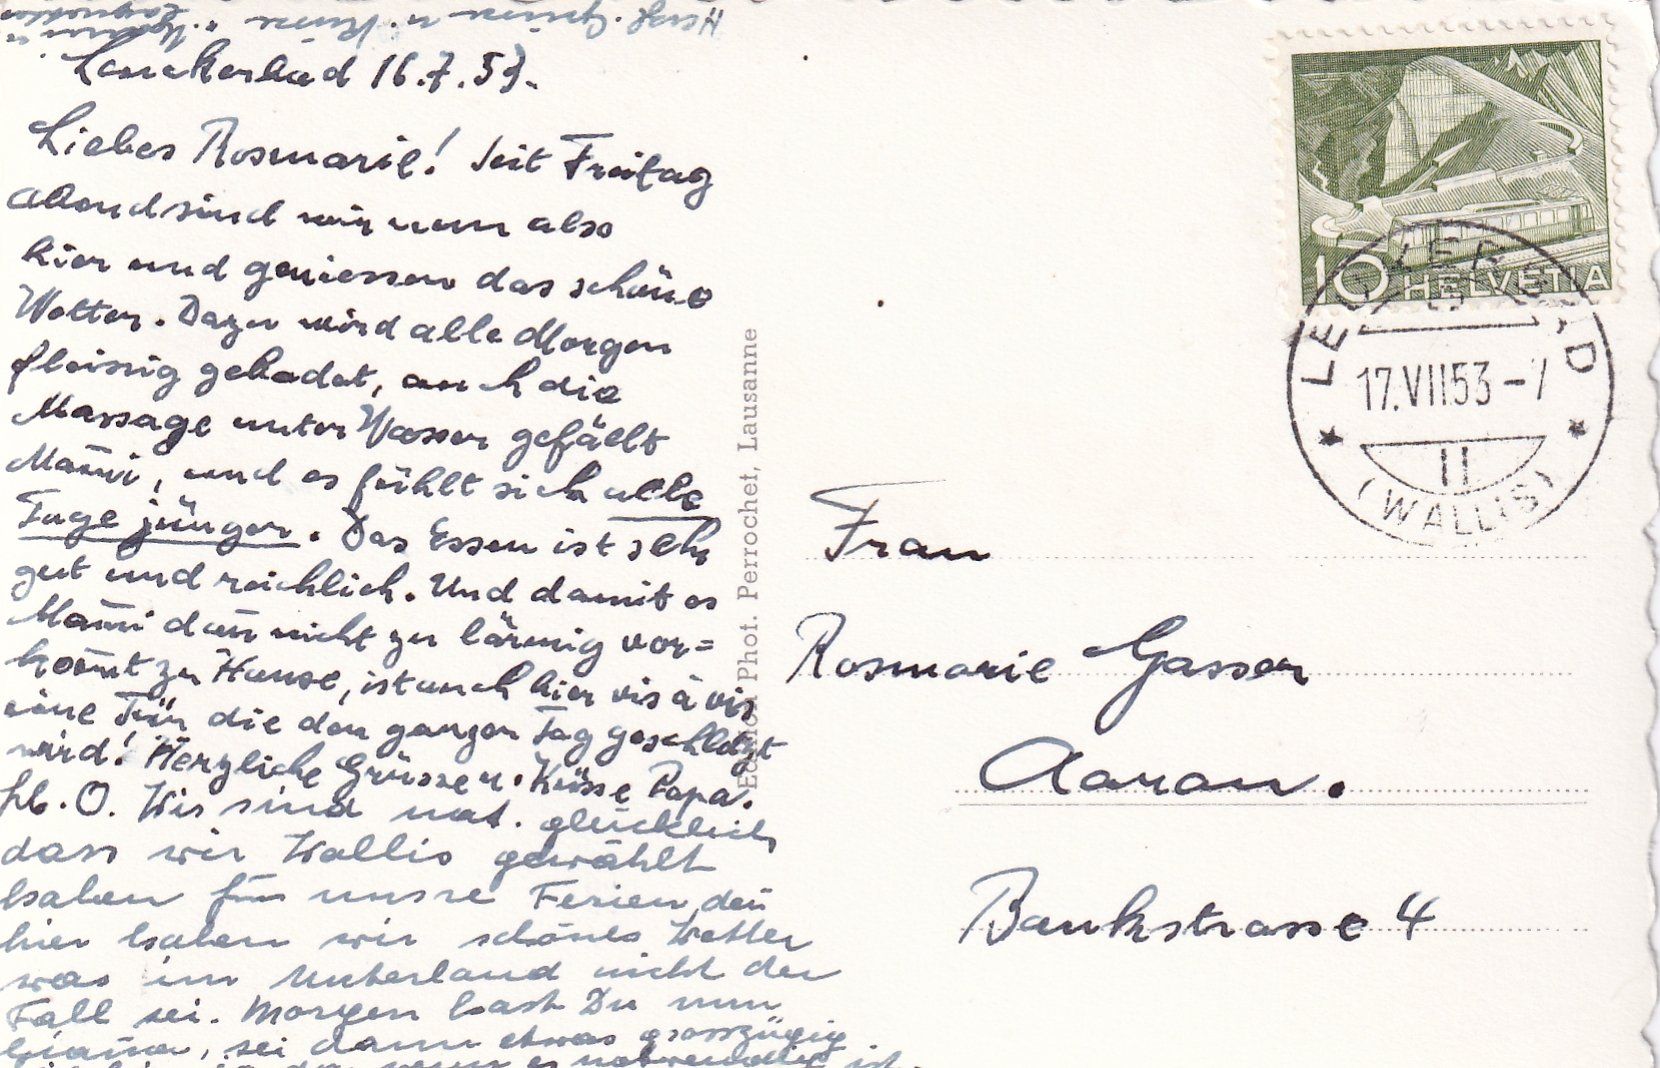 Herzl. Grüsse u. Küsse v. Mammi u.
Leuckerbad 16.7.53.
Liebes Rosmarie! Seit Freitag
abend sind wir nun also
hier und geniessen das schöne
Wetter. Dazu wird alle Morgen
fleissig gebadet, auch die
Massage unter Wasser gefällt
Mam̄i, und es fühlt sich alle
Tage jünger. Das Essen ist sehr
gut und reichlich. Und damit es
Mam̄i dan̄ nicht zu lärmig vor=
kom̄t zu Hause, ist auch hier vis à vis
eine Tür die den ganzen Tag geschletzt
wird! Herzliche Grüsse u. Küsse Papa.
Lb. O. Wir sind nat. glücklich
dass wir Wallis gewählt
haben für unsre Ferien, den̄
hier haben wir schönes Wetter
was im Unterland nicht der
Fall sei. Morgen hast Du nun
, sei dann etwas grosszügig
wenn es notwendig ist.
Edition Phot. Perrochet, Lausanne
10 HELVETIA
LEUKERBAD
17.VII53-7
11
(WALLIS)
Frau
Rosmarie Gasser
Aarau.
Bankstrasse 4